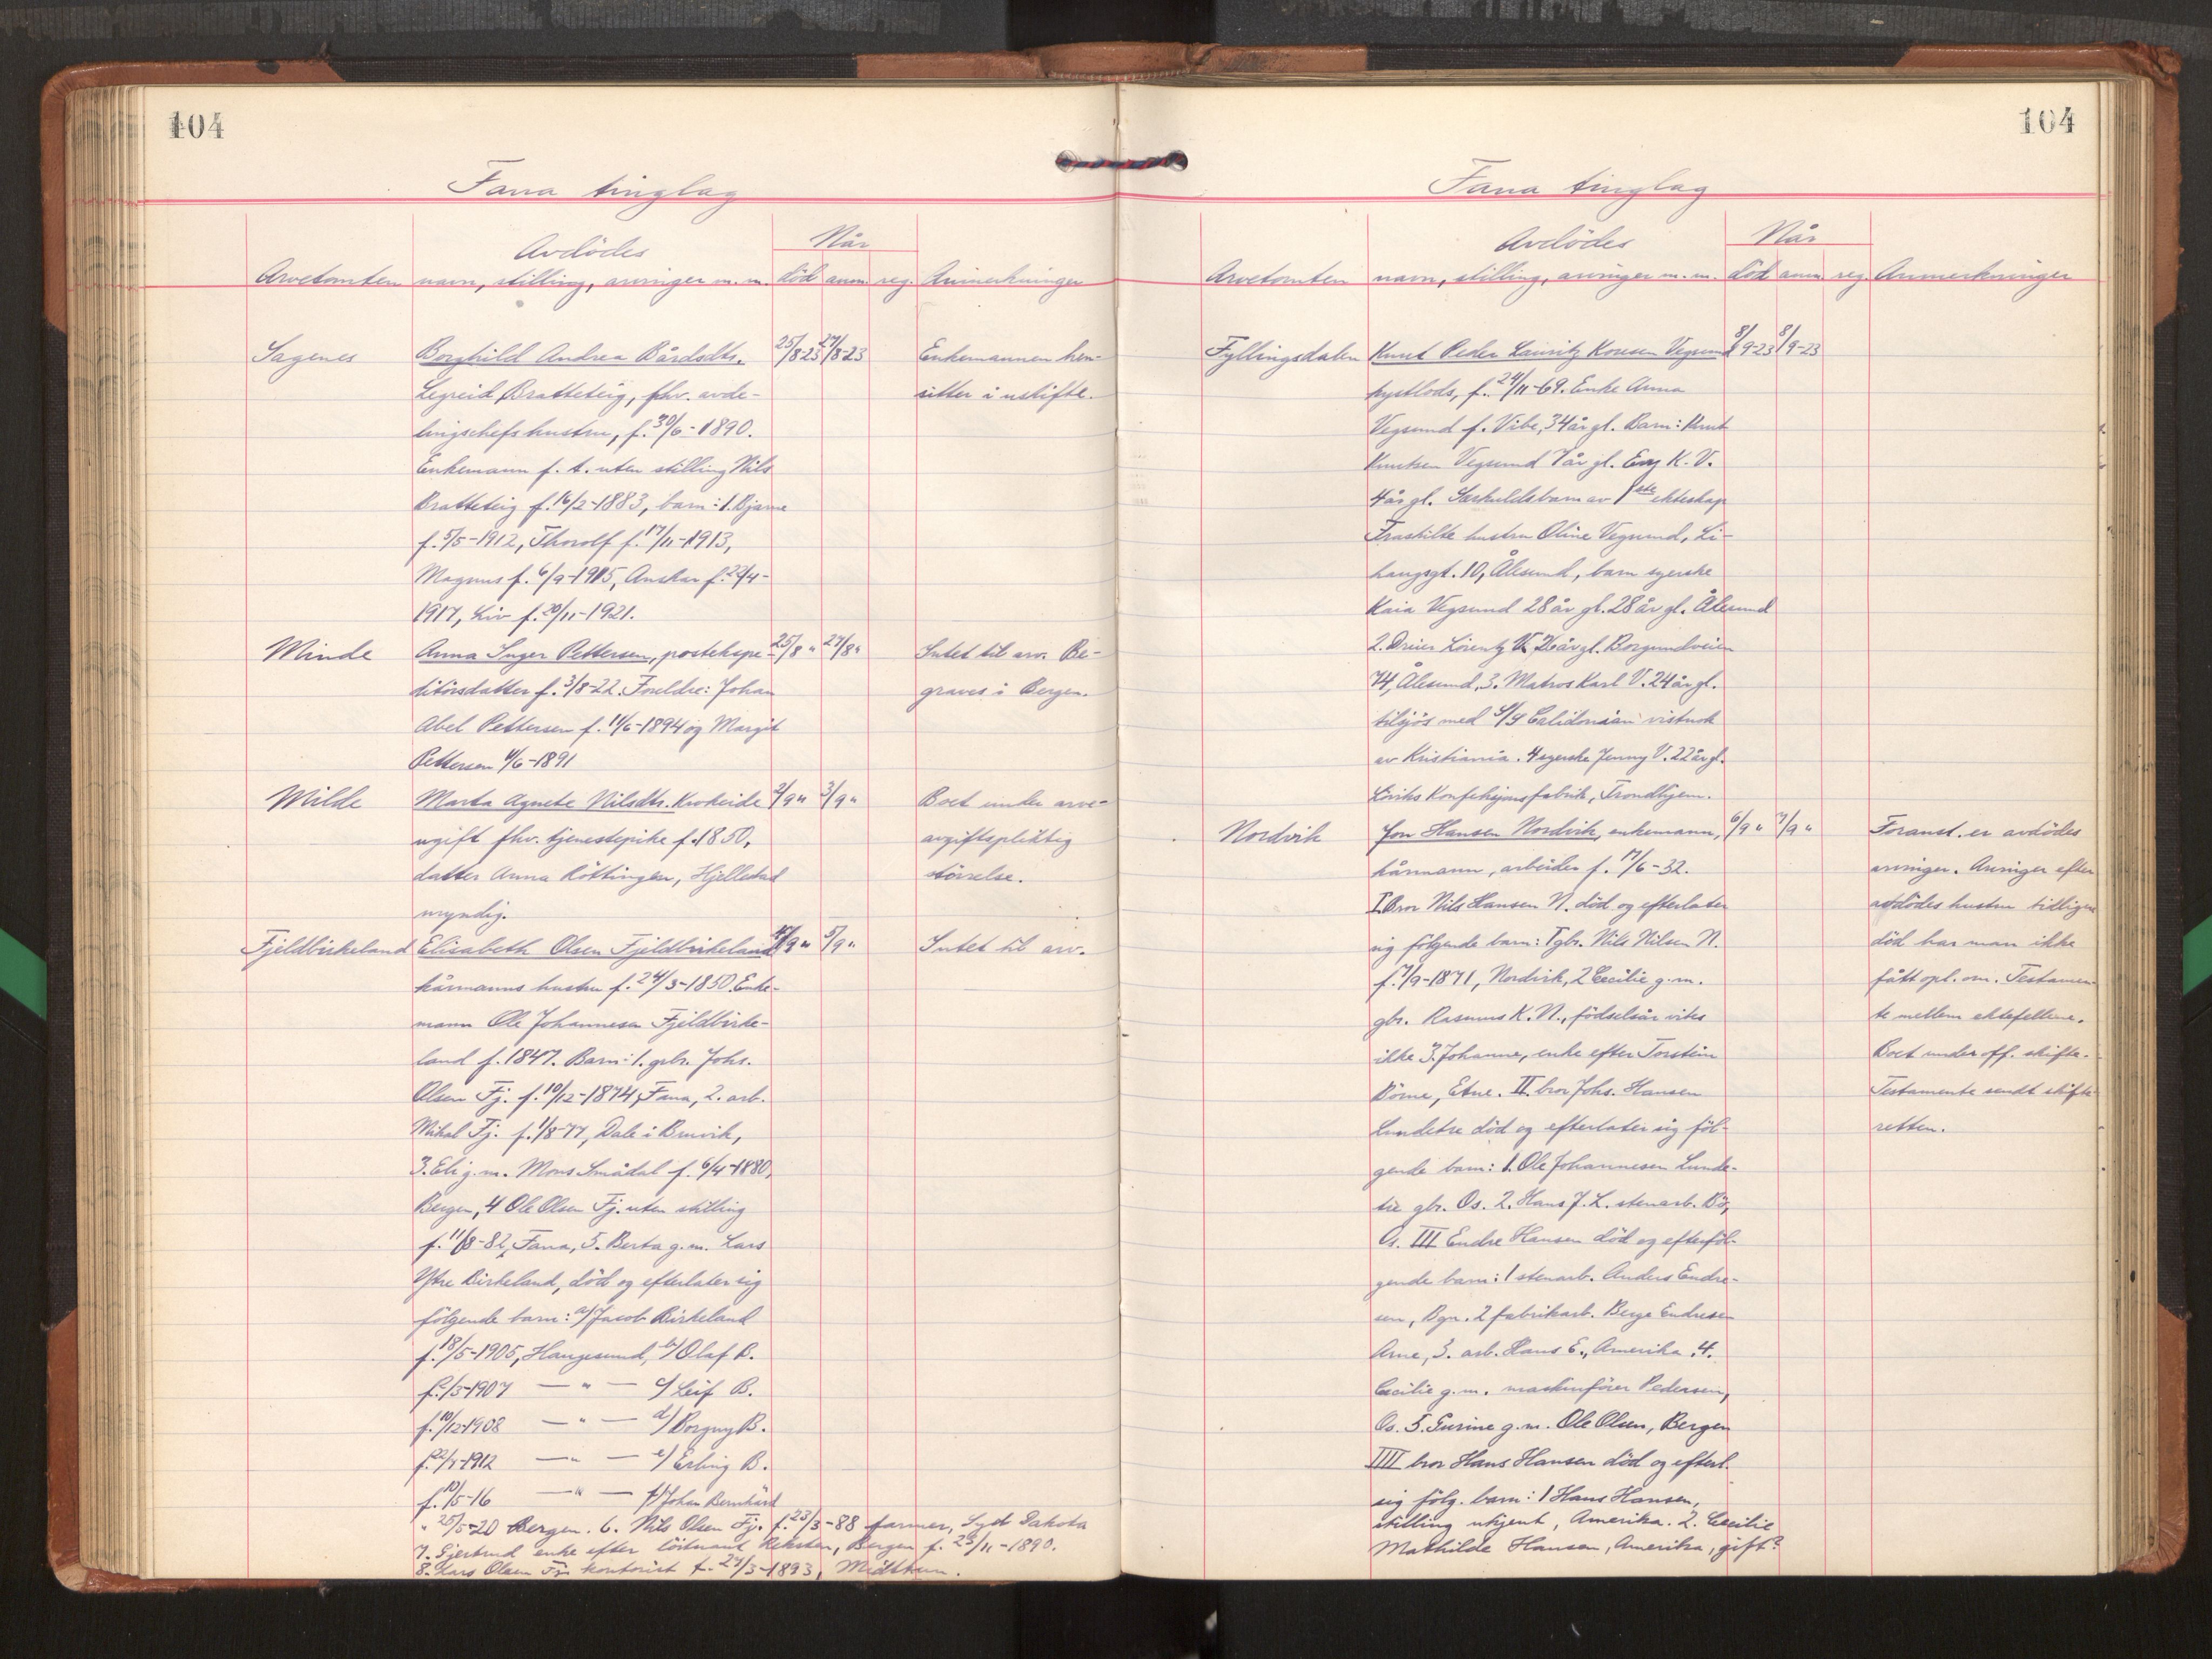 104
Fana tinglag
Avdödes
Når
Arvetomten navn, stilling, arvinger m. m. död anm. reg. Anmerkninger
Sagenes Borghild Andrea Bårdsdtr. 25/8-23 27/8-23 Enkemannen hen-
Legreid Bratteteig, fhv. avde- sitter i uskifte.
lingschefs hustru, f. 30/6-1890.
Enkemann f. t. uten stilling Nils
Bratteteig f. 16/2-1883, barn: 1. Bjarne
f. 5/5-1912, Thorolf f. 17/11-1913,
Magnus f. 6/9-1915, Anskar f. 29/4-
1917, Liv f. 20/11-1921.
Minde Anna Inger Pettersen, postekspe- 25/8 " 27/8 " Intet til arv. Be-
ditörsdatter f. 3/8-22. Foreldre: Johan graves i Bergen.
Abel Pettersen f. 11/6-1894 og Margit
Pettersen 4/6-1891
Milde Marta Agnete Nilsdtr. Krokeide 2/9 " 3/9 " Boet under arve-
ugift fhv. tjenestepike f. 1850, avgiftspliktig
datter Anna Röttingen, Hjellestad störrelse.
myndig.
Fjeldbirkeland Elisabeth Olsen Fjeldbirkeland /9 " 5/9 " Intet til arv.
kårmanns hustru f. 24/3-1850. Enke-
mann Ole Johannesen Fjeldbirke-
land f. 1847. Barn: 1. gbr. Johs.
Olsen Fj. f. 10/12-1874, Fana, 2. arb.
Mikal Fj. f. 1/8-77, Dale i Bruvik,
3. Eli g. m. Mons Smådal f. 6/4-1880,
Bergen, 4 Ole Olsen Fj. uten stilling
f. 11/8-82, Fana, 5. Berta g. m. Lars
Ytre Birkeland, död og efterlater sig
följgende barn: a/ Jacob Birkeland
f. 18/5-1905, Haugesund, b/ Olaf B.
f. /3-1907 — " — c/ Leif B.
f. 10/12-1908 — " — d/ Borgny B.
f. 22/ -1912 — " — e/ Erling B.
f. 10/5-16 — " — f/ Johan Bernhard
" 25/5-20 Bergen. 6. Nils Olsen Fj. f. 23/3-88 farmer, Syd Dakota
7. Gjertrud enke efter löitnant Reksten, Bergen f. 29/11-1890.
8. Lars Olsen Fj. kontorist f. 27/3-1893, Midttun.
104
Fana tinglag
Avdödes
Når
Arvetomten navn, stilling, arvinger m. m. död anm. reg. Anmerkninger
Fyllingsdalen Knut Peder Lauritz Vegsund 8/9-23 8/9-23
kystlods, f. 24/11-69. Enke Anna
Vegsund f. Vibe, 34 år gl. Barn: Knut
Knutsen Vegsund 7 år gl. K. V.
4 år gl. Særkuldsbarn av 1ste ekteskap
Fraskilte hustru Oline Vegsund, Li-
haugsgt. 10, Ålesund, barn syerske
Kaia Vegsund 28 år gl. 28 år gl. Ålesund
2. Dreier Lorentz V. 26 år gl. Borgundveien
74, Ålesund, 3. Matros Karl V. 24 år gl.
tilsjös med S/S Calidonian vistnok
av Kristiania. 4 syerske Jenny V. 22 år gl.
Löviks Konfeksjonsfabrik, Trondhjem.
Nordvik Jon Hansen Nordvik, enkemann, 6/9 " 7/9 " Foranst. er avdödes
kårmann, arbeider f. 17/6-32. arvinger. Arvinger efter
I. Bror Nils Hansen N. död og efterlater avdödes hustru tidligere
sig fölgende barn: 1 gbr. Nils Nilsen N. död har man ikke
f. 7/9-1871, Nordvik, 2 Cecilie g. m. fått opl. om. Testamen-
gbr. Rasmus K. N., födselsår vites te mellem ektefellene.
ikke 3. Johanne, enke efter Torstein Boet under off. skifte.
Börne, Etne. II. bror Johs. Hansen Testamente sendt skifte-
Lundetre död og efterlater sig föl- retten.
gende barn: 1. Ole Johannesen Lunde-
tre gbr. Os. 2. Hans J. L. stenarb. Bö,
Os. III Endre Hansen död og efterföl-
gende barn: 1 stenarb. Anders Endre-
sen, Bgn. 2 fabrikarb. Berge Endresen
Arne, 3. arb. Hans E., Amerika. 4.
Cecilie g. m. maskinförer Pedersen,
Os. 5. Gurine g. m. Ole Olsen, Bergen
IIII bror Hans Hansen död og efterl.
sig fölg. barn: 1 Hans Hansen,
stilling ukjent, Amerika. 2. Cecilie
Mathilde Hansen, Amerika, gift?